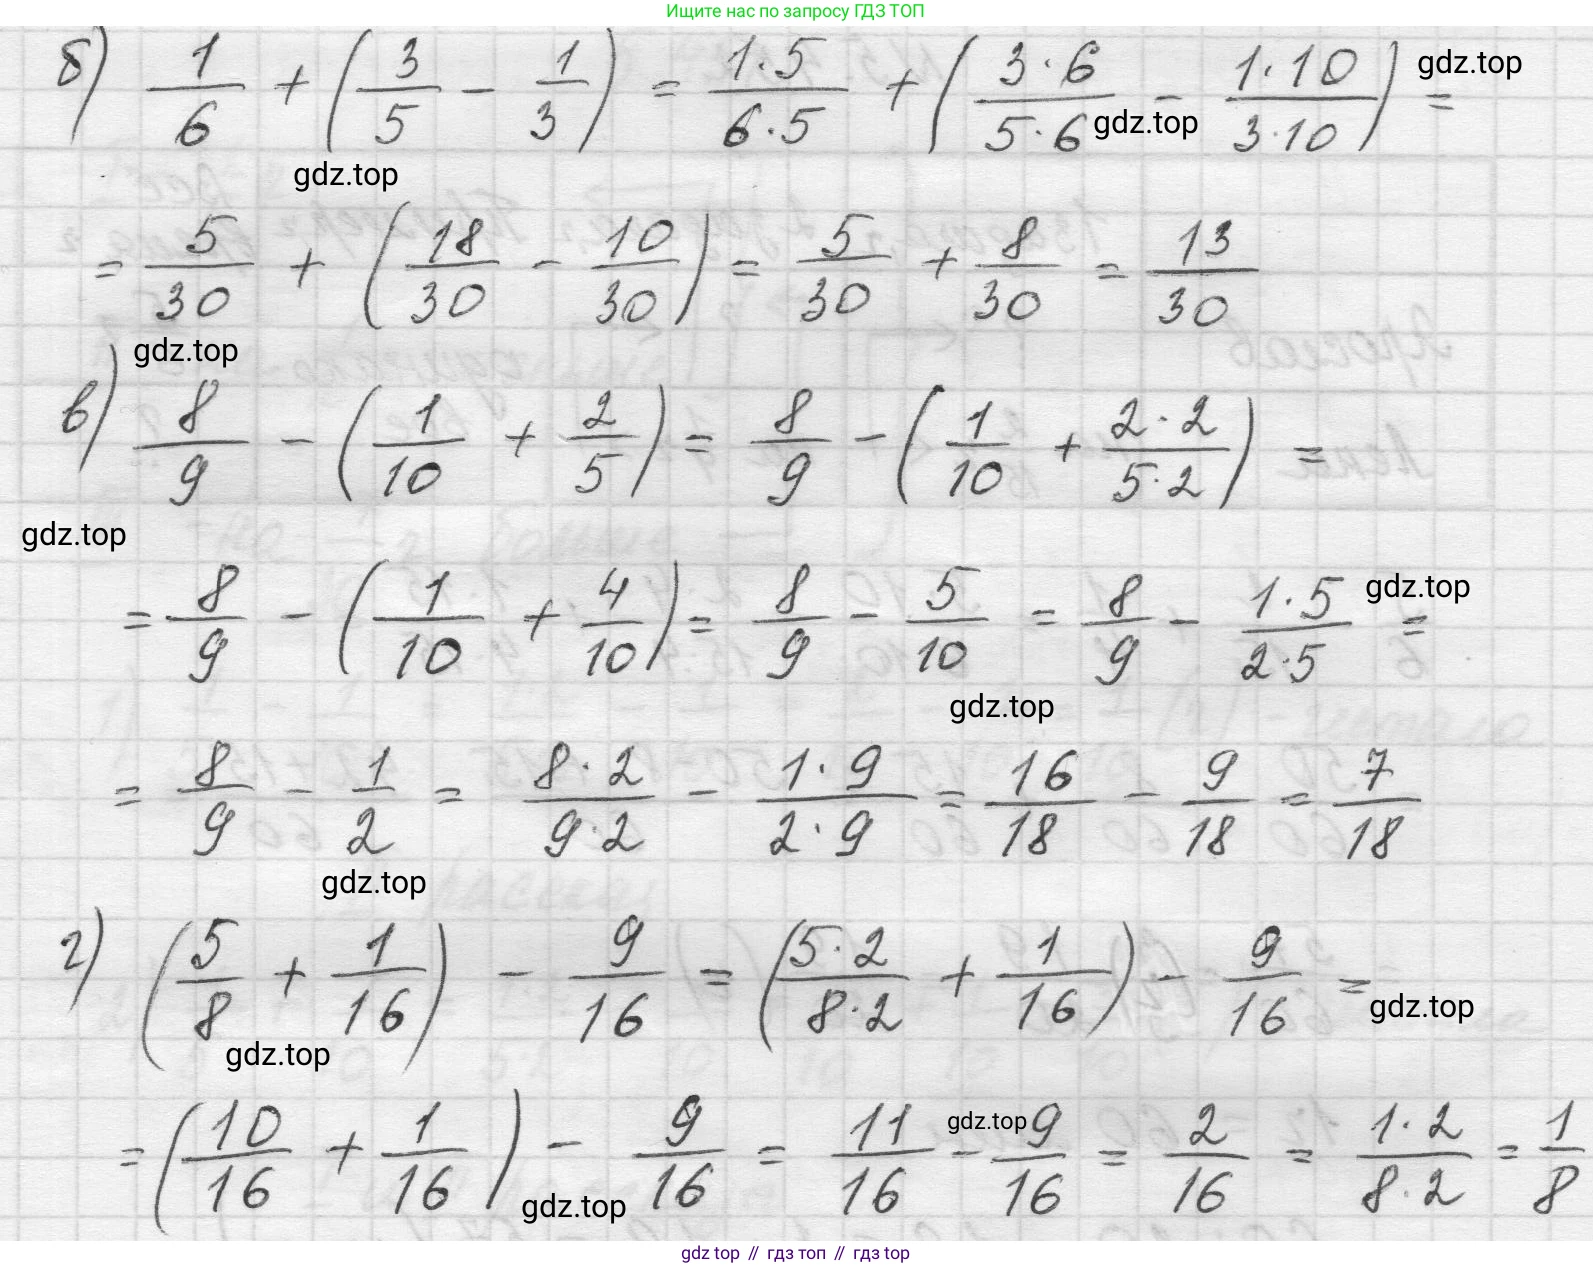 Ищите нас по запросу ГДЗ ТОП
б) 1/6 + (3/5 - 1/3) = 1·5/6·5 + (3·6/5·6 - 1·10/3·10) =
gdz.top
gdz.top
gdz.top
= 5/30 + (18/30 - 10/30) = 5/30 + 8/30 = 13/30
gdz.top
в) 8/9 - (1/10 + 2/5) = 8/9 - (1/10 + 2·2/5·2) =
gdz.top
= 8/9 - (1/10 + 4/10) = 8/9 - 5/10 = 8/9 - 1·5/2·5 =
gdz.top
gdz.top
= 8/9 - 1/2 = 8·2/9·2 - 1·9/2·9 = 16/18 - 9/18 = 7/18
gdz.top
г) (5/8 + 1/16) - 9/16 = (5·2/8·2 + 1/16) - 9/16 =
gdz.top
gdz.top
= (10/16 + 1/16) - 9/16 = 11/16 - 9/16 = 2/16 = 1·2/8·2 = 1/8
gdz.top
gdz.top
gdz top // гдз топ // gdz top